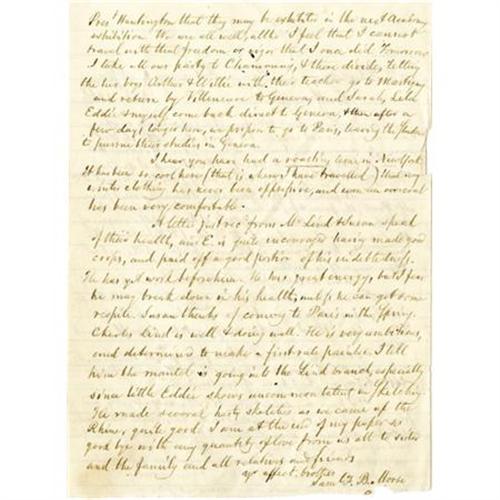 Prest Huntington that they may be exhibited in the next Academy
exhibition. We are all well, altho I feel that I cannot
travel with that freedom or vigor that I once did. Tomorrow
I take all our party to Chamounix, & there divide, letting
the two boys Arthur & Willie with their teacher go to Martigny
and return by Villeneuve to Geneva, and Sarah, Leila
Eddie & myself come back direct to Geneva, & then after a
few days longer here, we propose to go to Paris, leaving the
to pursue their studies in Geneva.
I hear you have had a roasting time in New York
It has been so cool here (that is where I have travelled) that my
winter clothing has never been oppressive, and even an overcoat
has been very comfortable.
A letter just recd from Mr Lind & Susan speak
of their health, and E. is quite encouraged having made good
crops, and paid off a good portion of his indebtedness.
He has yet work before him. He has great energy, but I fear
he may break down in his health, unless he can get some
respite. Susan thinks of coming to Paris in the Spring.
Charles Lind is well & doing well. He is very ambitious,
and determined to make a first rate painter. I tell
him the mantel is going into the Lind branch, especially
since little Eddie shows uncommon talent in sketching.
He made several hasty sketches as we came up the
Rhine, quite good. I am at the end of my paper so
good bye with any quantity of love from us all to sister
and the family and all relatives and friends
yr affect. brother
Saml F. B. Morse